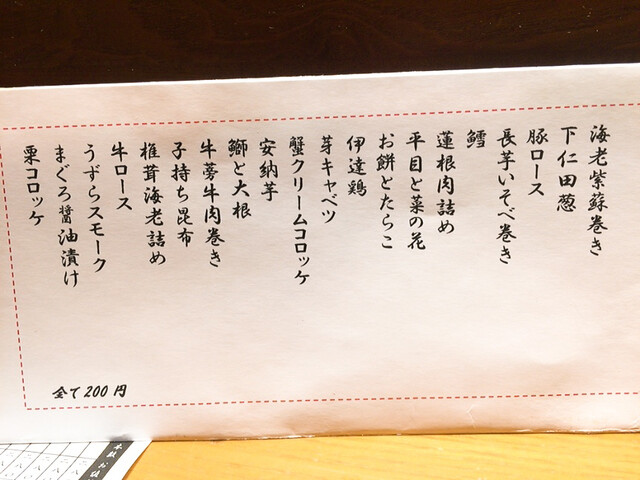 海老紫蘇巻き
下仁田葱
豚ロース
長芋いそべ巻き
鱈
蓮根肉詰め
平目と菜の花
お餅とたらこ
伊達鶏
芽キャベツ
蟹クリームコロッケ
安納芋
鰤と大根
牛蒡牛肉巻き
子持ち昆布
椎茸海老詰め
牛ロース
うずらスモーク
まぐろ醤油漬け
栗コロッケ
全て200円